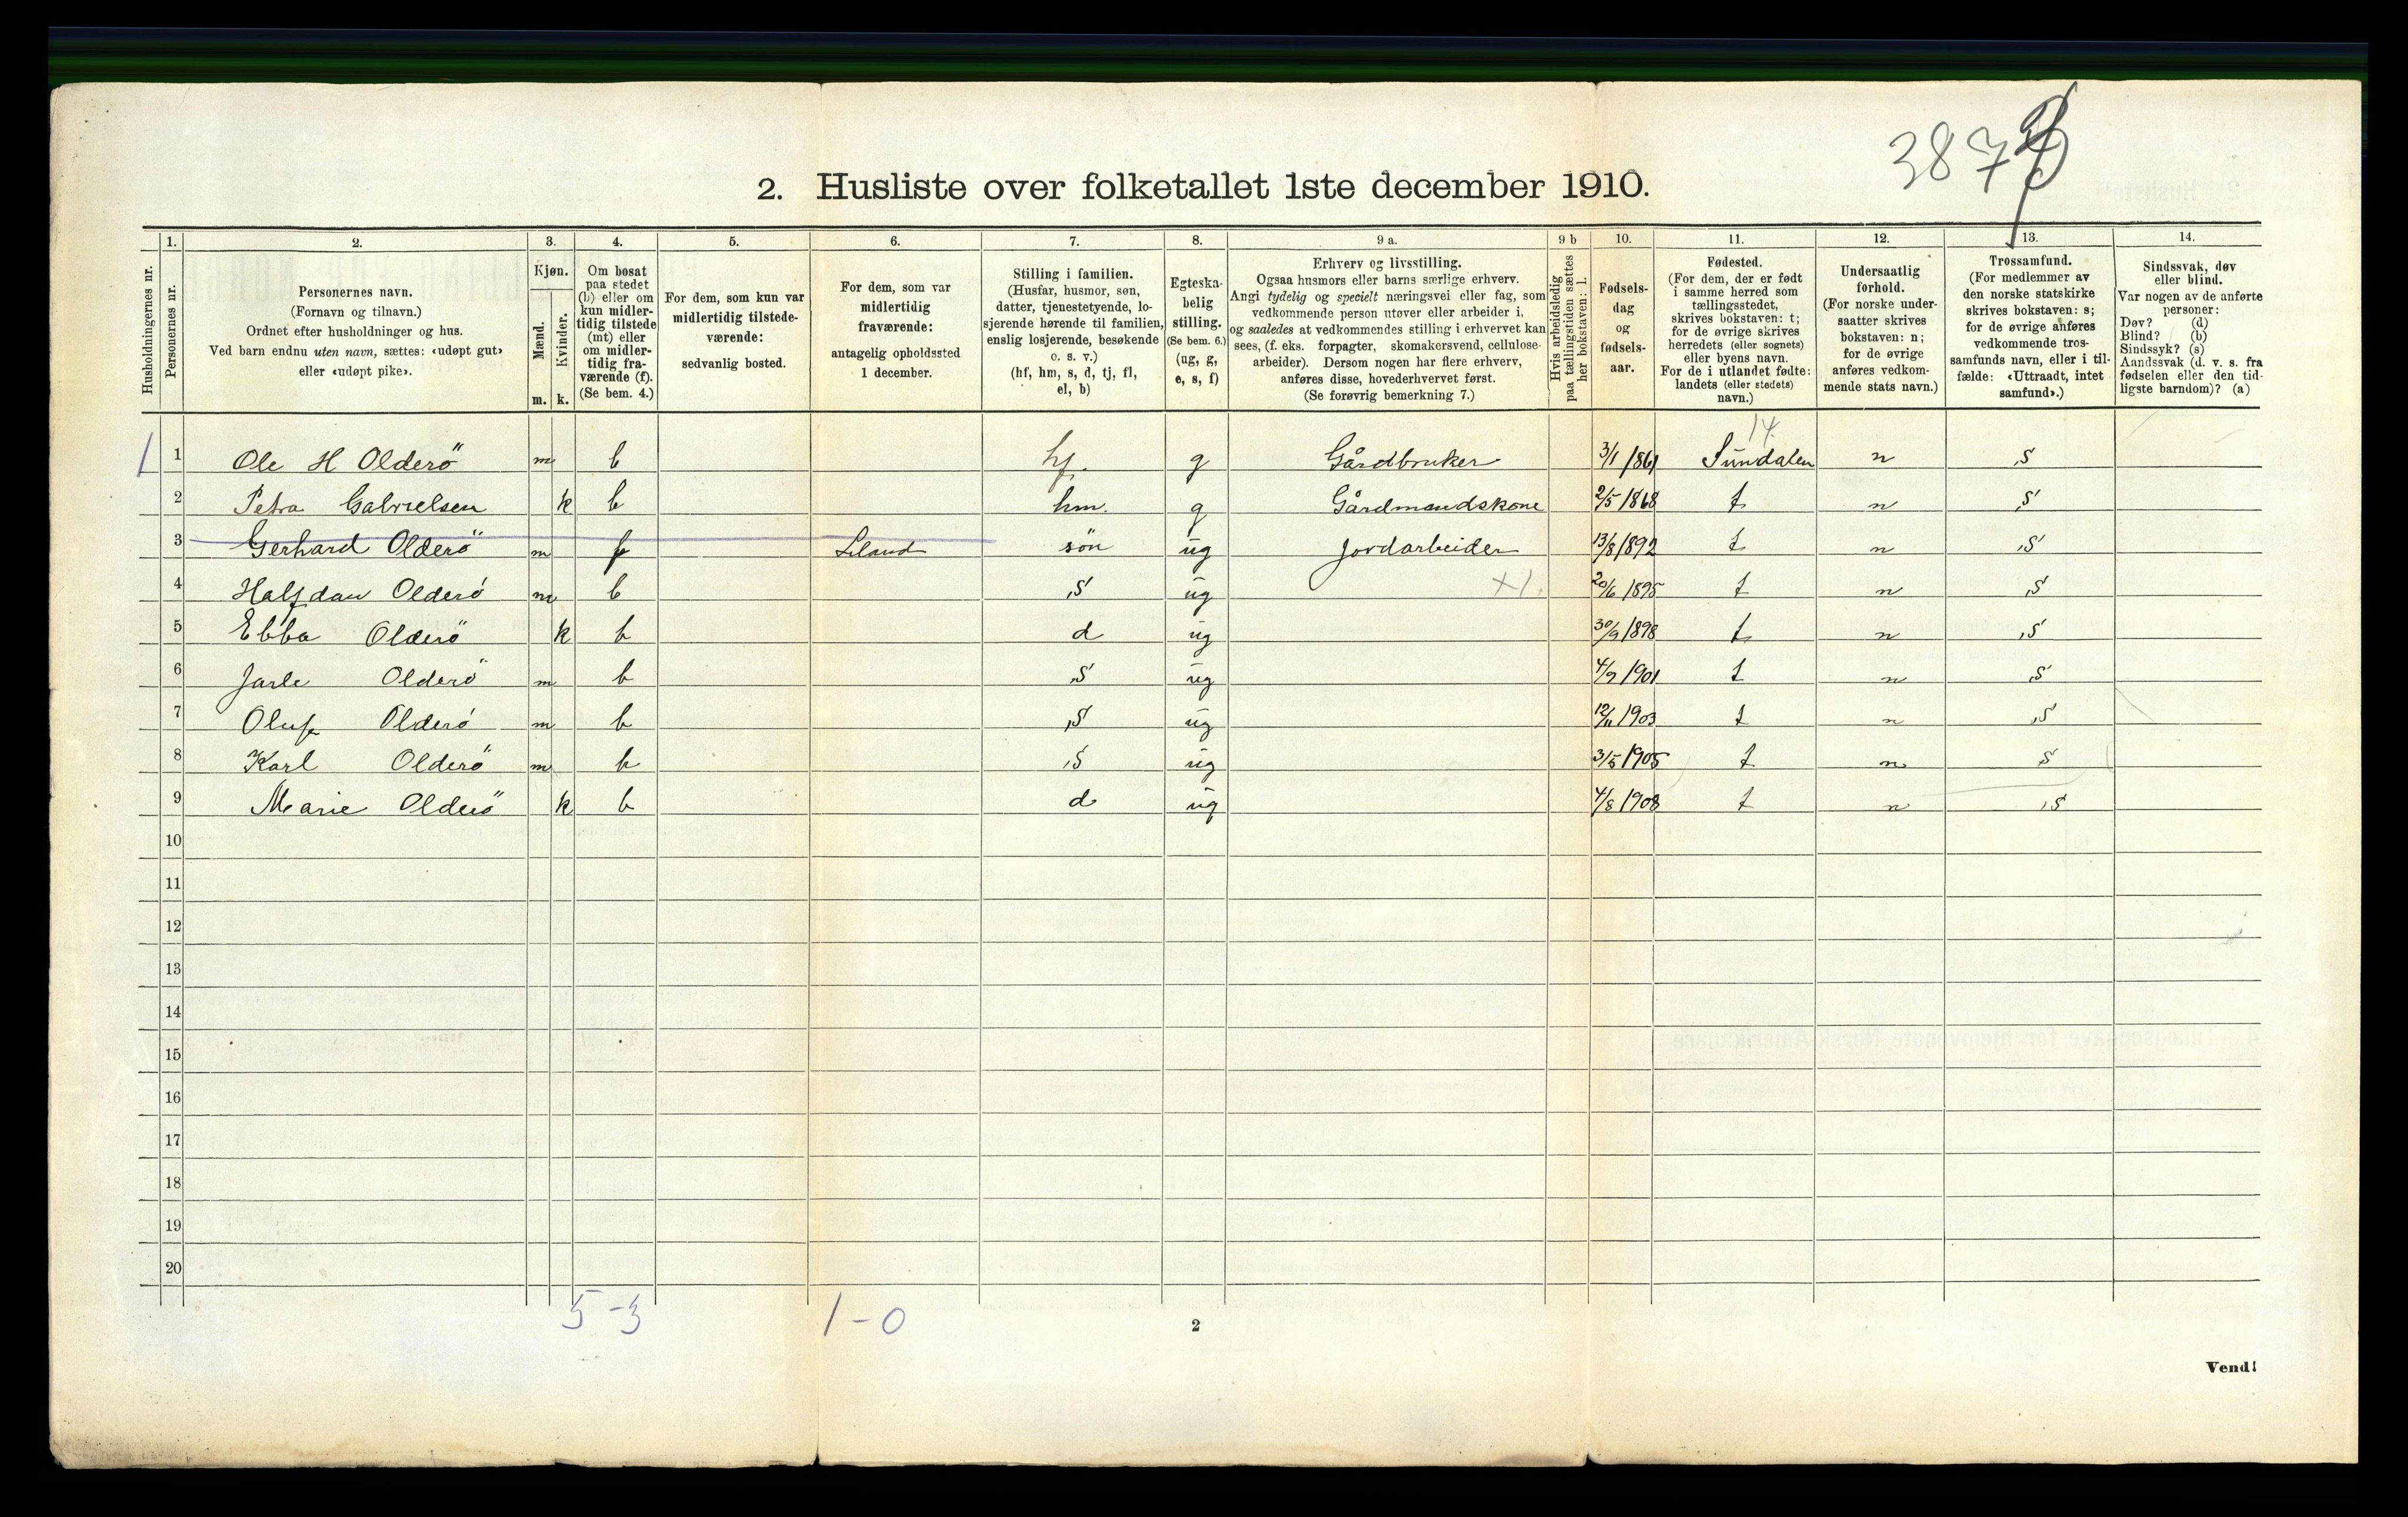 387
2. Husliste over folketallet 1ste december 1910.
Husholdningernes nr.
1. Personernes nr.
2. Personernes navn.
(Fornavn og tilnavn.)
Ordnet efter husholdninger og hus.
Ved barn endnu uten navn, sættes: «udøpt gut»
eller «udøpt pike».
3. Kjøn.
Mænd. m.
Kvinder. k.
4. Om bosat
paa stedet
(b) eller om
kun midler-
tidig tilstede
(mt) eller
om midler-
tidig fra-
værende (f).
(Se bem. 4.)
5. For dem, som kun var
midlertidig tilstede-
værende:
sedvanlig bosted.
6. For dem, som var
midlertidig
fraværende:
antagelig opholdssted
1 december.
7. Stilling i familien.
(Husfar, husmor, søn,
datter, tjenestetyende, lo-
sjerende hørende til familien,
enslig losjerende, besøkende
o. s. v.)
(hf, hm, s, d, tj, fl,
el, b)
8. Egteska-
belig
stilling.
(Se bem. 6.)
(ug, g,
e, s, f)
9 a. Erhverv og livsstilling.
Ogsaa husmors eller barns særlige erhverv.
Angi tydelig og specielt næringsvei eller fag, som
vedkommende person utøver eller arbeider i,
og saaledes at vedkommendes stilling i erhvervet kan
sees, (f. eks. forpagter, skomakersvend, cellulose-
arbeider). Dersom nogen har flere erhverv,
anføres disse, hovederhvervet først.
(Se forøvrig bemerkning 7.)
9 b Hvis arbeidsledig
paa tællingstiden sættes
her bokstaven: l.
10. Fødsels-
dag
og
fødsels-
aar.
11. Fødested.
(For dem, der er født
i samme herred som
tællingsstedet,
skrives bokstaven: t;
for de øvrige skrives
herredets (eller sognets)
eller byens navn.
For de i utlandet fødte:
landets (eller stedets)
navn.)
12. Undersaatlig
forhold.
(For norske under-
saatter skrives
bokstaven: n;
for de øvrige
anføres vedkom-
mende stats navn.)
13. Trossamfund.
(For medlemmer av
den norske statskirke
skrives bokstaven: s;
for de øvrige anføres
vedkommende tros-
samfunds navn, eller i til-
fælde: «Uttraadt, intet
samfund».)
14. Sindssvak, døv
eller blind.
Var nogen av de anførte
personer:
Døv? (d)
Blind? (b)
Sindssyk? (s)
Aandssvak (d. v. s. fra
fødselen eller den tid-
ligste barndom)? (a)
14.
1 1 Ole H Olderö m b hf. g Gårdbruker 3/1 1861 Sundalen n S
2 Petra Gabrielsen k b hm. g Gårdmandskone 2/5 1868 t n S
3 Gerhard Olderö m f Leland sön ug Jordarbeider 13/8 1892 t n S
4 Halfdan Olderö m b S ug 20/6 1895 t n S
5 Ebba Olderö k b d ug 30/9 1898 t n S
6 Jarle Olderö m b S ug 4/9 1901 t n S
7 Oluf Olderö m b S ug 12/11 1903 t n S
8 Karl Olderö m b S ug 3/5 1905 t n S
9 Marie Olderö k b d ug 4/8 1908 t n S
10
11
12
13
14
15
16
17
18
19
20
5-3 1-0
2
Vend!